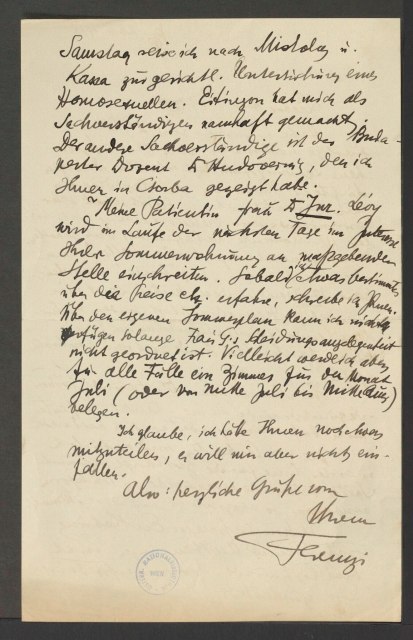 Samstag reise ich nach Miskolcz u.
Kassa zur gerichtl. Untersuchung eines
Homosexuellen. Eitingon hat mich als
Sachverständigen namhaft gemacht.
Der andre Sachverständige ist der Buda-
pester Dozent Dr Hudovernig, den ich
Ihnen in Csorba gezeigt habe.
Meine Patientin Frau Dr Jur. Lévy
wird im Laufe der nächsten Tage im Interesse
Ihrer Sommerwohnung an maßgebender
Stelle einschreiten. Sobald ich etwas bestimmtes
über die Preise etc. erfahre, schreibe ich Ihnen.
Über den eigenen Sommerplan kann ich nichts
verfügen solange Frau G.s Scheidungsangelegenheit
nicht geordnet ist. Vielleicht werde ich aber
für alle Fälle ein Zimmer für den Monat
Juli (oder von Mitte Juli bis Mitte Aug.)
belegen.
Ich glaube, ich hätte Ihnen noch etwas
mitzuteilen, es will mir aber nichts ein-
fallen.
Also: herzliche Grüße vom
Ihrem
Ferenczi
WIEN